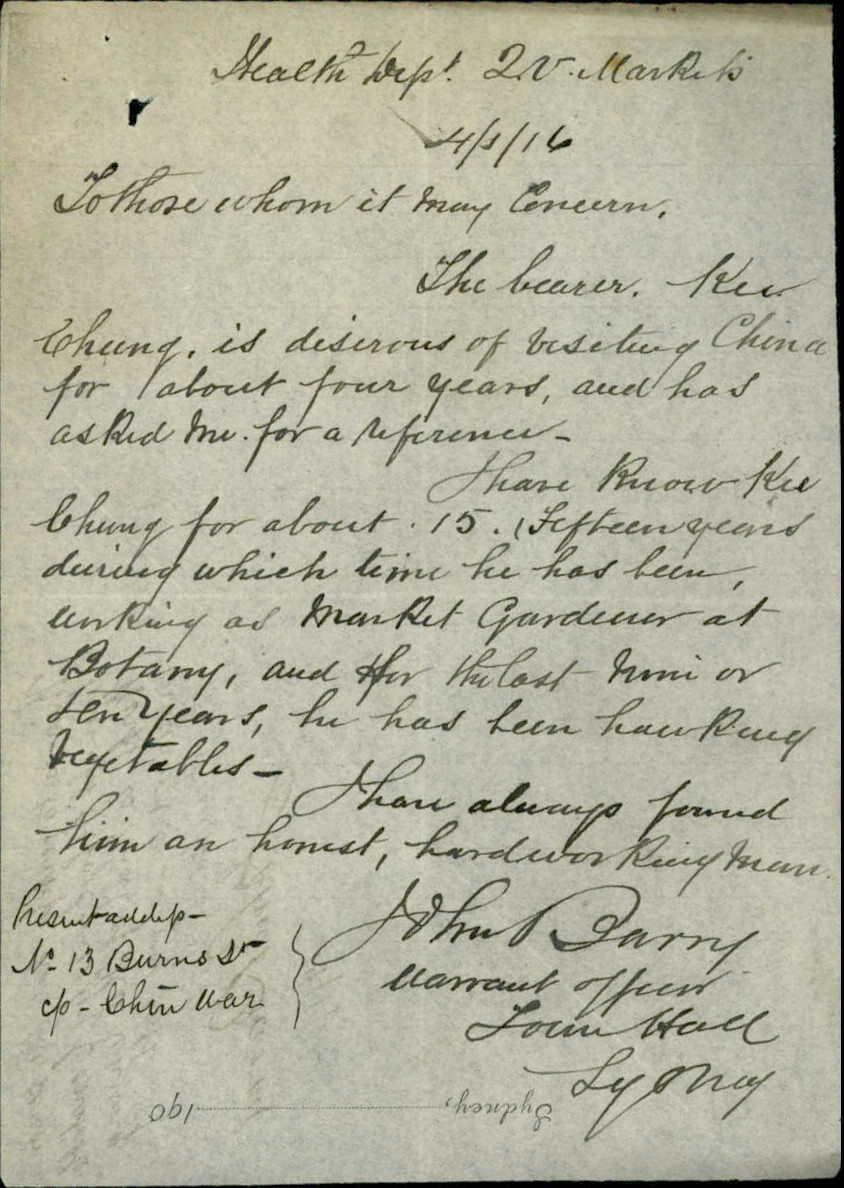 Health Dept. Q.V. Markets
4/1/16
To those whom it may Concern.
The bearer. Kee
Chung. is desirous of visiting China
for about four years, and has
asked me. for a reference -
I have know Kee
Chung for about. 15. (Fifteen years
during which time he has been,
working as Market Gardener at
Botany, and for the last nine or
ten years, he has been hawking
vegetables -
I have always found
him an honest, hardworking man.
John Barry
Warrant officer
Town Hall
Sydney
Present address -
No. 13 Burns St
c/o - Chin War
Sydney, 190